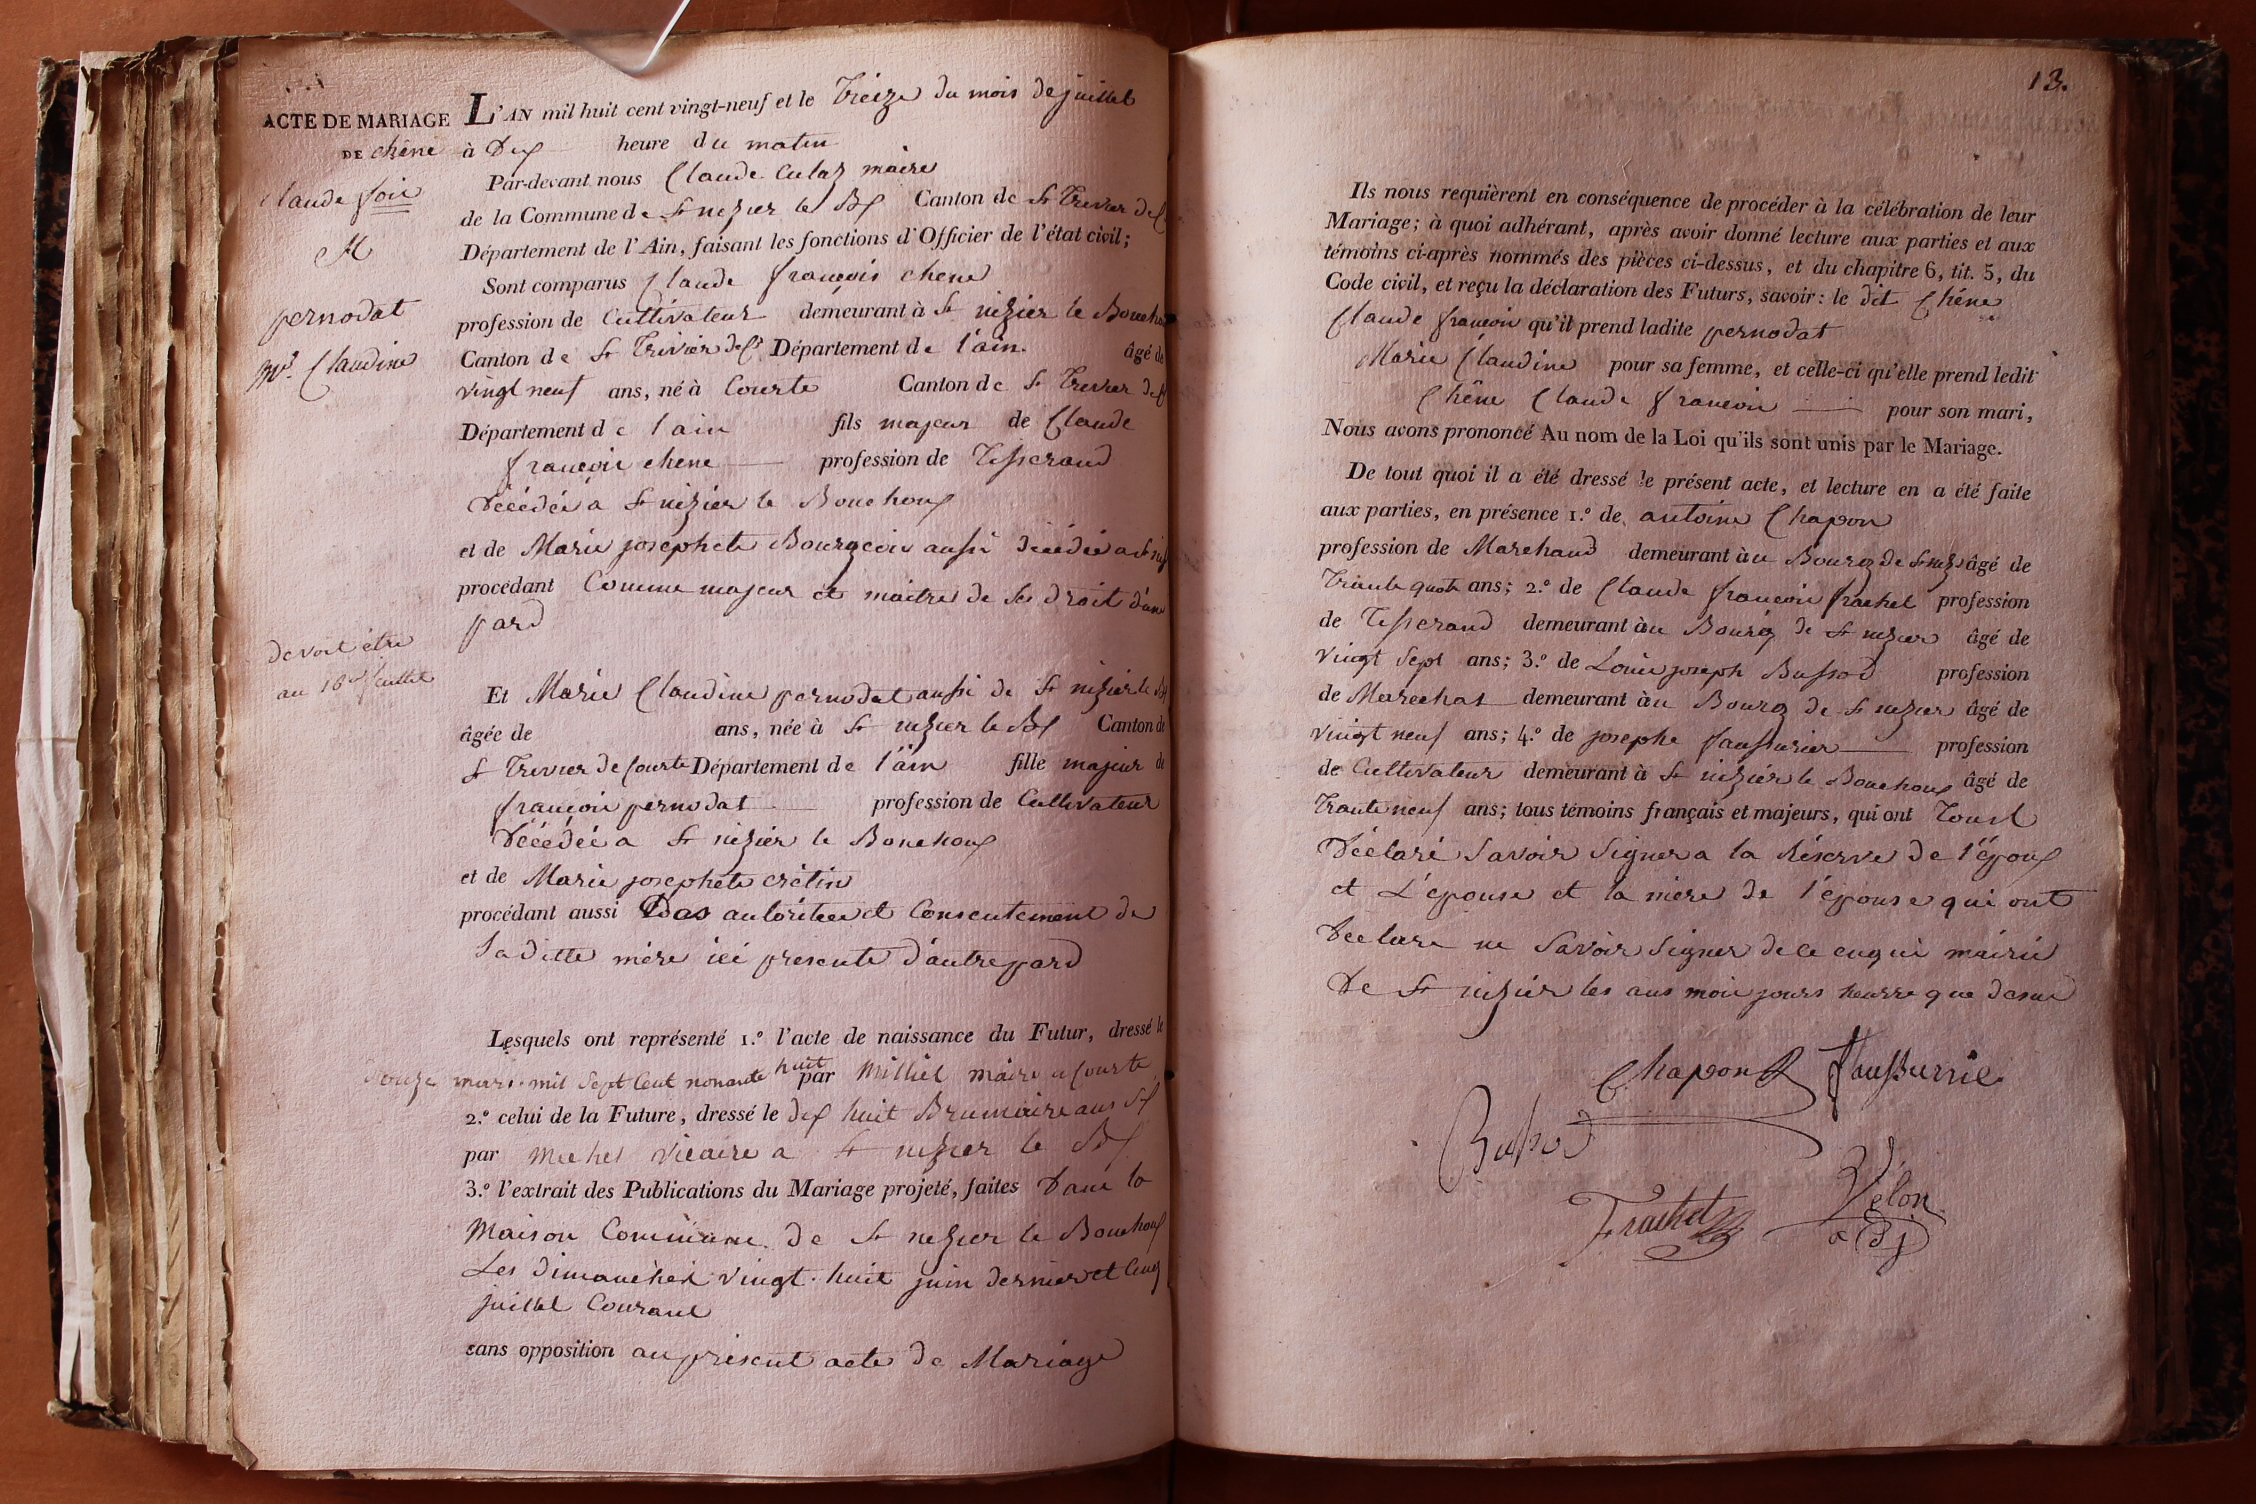 ACTE DE MARIAGE
DE chêne
Claude foie
et
pernodat
Mie Claudine
devoit être
au 16 juillet
L'AN mil huit cent vingt-neuf et le Treize du mois de juillet
à Dix heure du matin
Par-devant nous Claude Culaz maire
de la Commune de St nizier le Bx Canton de St Trivier de C
Département de l'Ain, faisant les fonctions d'Officier de l'état civil;
Sont comparus Claude françois chene
profession de Cultivateur demeurant à St nizier le Boucho
Canton de St Trivier de Cs Département de l'ain. âgé de
vingt neuf ans, né à Courte Canton de St Trivier de C
Département de l'ain fils majeur de Claude
françois chene profession de Tisserand
Décédé a St nizier le Bouchoux
et de Marie josephete Bourgeois aussi décédée a St niz
procédant Comme majeur et maitre de ses droit d'une
pard
Et Marie Claudine pernodat aussi de St nizier le Bx
âgée de ans, née à St nizier le Bx Canton de
St Trivier de Courte Département de l'ain fille majeur de
françois pernodat profession de Cultivateur
Décédé a St nizier le Bouchoux
et de Marie josephete crétin
procédant aussi autoritée et Consentement de
Saditte mère ici presente d'autre pard
Lesquels ont représenté 1.º l'acte de naissance du Futur, dressé le
Douze mars mil sept Cent nonante huit par Milliet maire a Courte
2.º celui de la Future, dressé le dix huit Brumaire ans Six
par Michel vicaire a St nizier le Bx
3.º l'extrait des Publications du Mariage projeté, faites Dans la
Maison Commune de St nizier le Bouchoux
Les dimanches vingt-huit juin dernier et Cinq
juillet Courant
sans opposition au présent acte de Mariage
13.
Ils nous requièrent en conséquence de procéder à la célébration de leur
Mariage; à quoi adhérant, après avoir donné lecture aux parties et aux
témoins ci-après nommés des pièces ci-dessus, et du chapitre 6, tit. 5, du
Code civil, et reçu la déclaration des Futurs, savoir: le dit Chêne
Claude françois qu'il prend ladite pernodat
Marie Claudine pour sa femme, et celle-ci qu'elle prend ledit
Chêne Claude françois pour son mari,
Nous avons prononcé Au nom de la Loi qu'ils sont unis par le Mariage.
De tout quoi il a été dressé le présent acte, et lecture en a été faite
aux parties, en présence 1.º de antoine Chapon
profession de Marchand demeurant àu Bourg de St niz âgé de
Trante quatre ans; 2.º de Claude françois frachet profession
de Tisserand demeurant àu Bourg de St nizier âgé de
vingt sept ans; 3.º de Louis joseph Bussod profession
de Marechat demeurant àu Bourg de St nizier âgé de
vingt neuf ans; 4.º de josephe faussurier profession
de Cultivateur demeurant à St nizier le Bouchoux âgé de
Trante neuf ans; tous témoins français et majeurs, qui ont Tous
Déclaré Savoir Signer a la Réserve de l'époux
et L'épouse et la mère de l'épouse qui ont
Declare ne Savoir Signer de ce enqui mairie
De St nizier les ans mois jours heurre que desue
Chapon faussurrie
Bussod
Frachet Vélon
adj